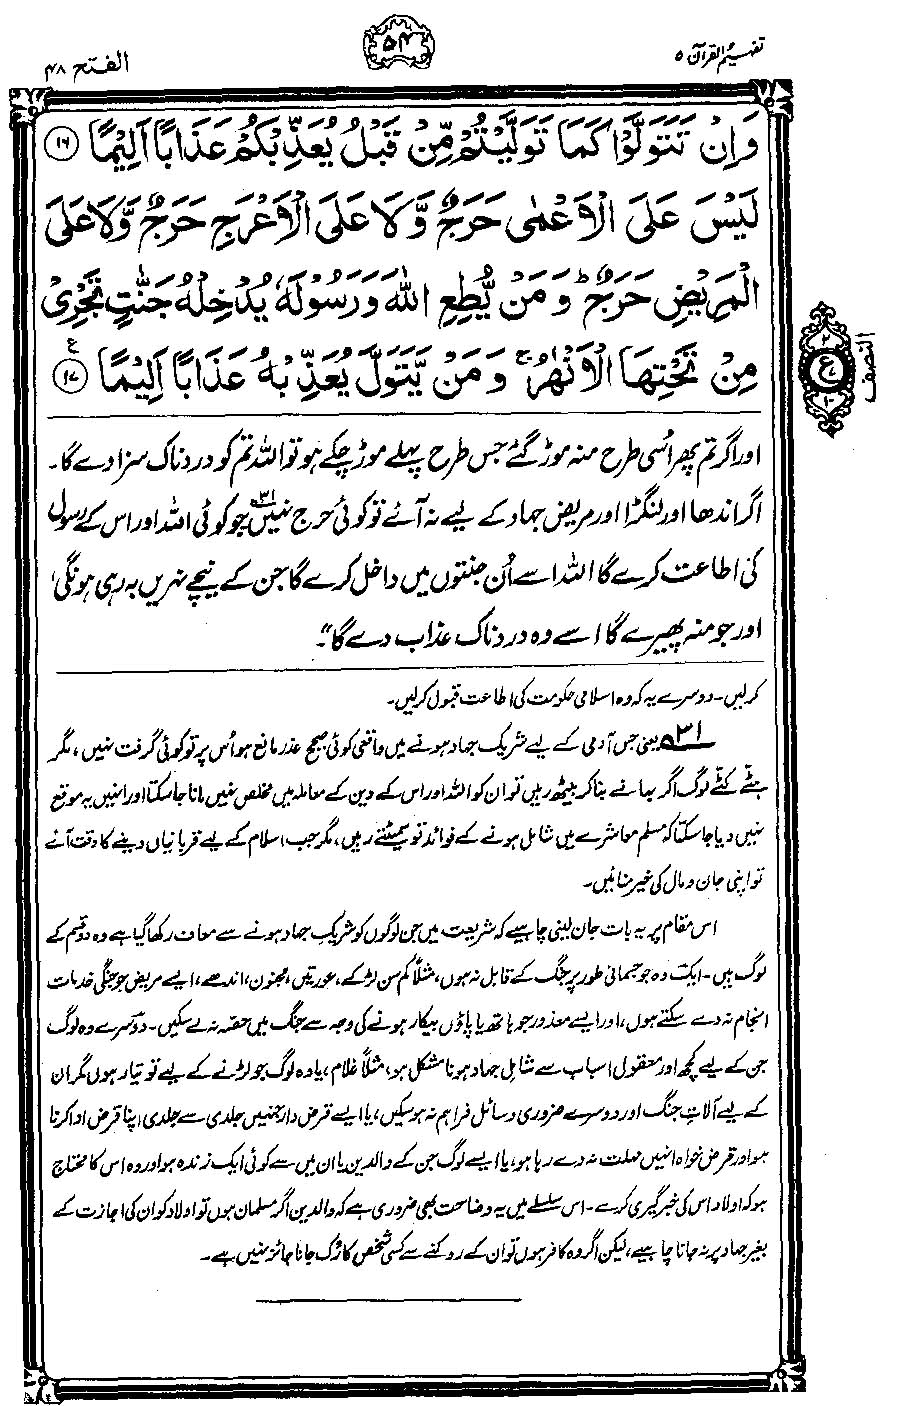 تفہیم القرآن ۵
۵۴
الفتح ۴۸
وَاِنْ تَتَوَلَّوْا كَمَا تَوَلَّيْتُمْ مِّنْ قَبْلُ يُعَذِّبْكُمْ عَذَابًا اَلِيْمًا ﴿۱۶﴾
لَيْسَ عَلَى الْاَعْمٰى حَرَجٌ وَّلَا عَلَى الْاَعْرَجِ حَرَجٌ وَّلَا عَلَى
الْمَرِيْضِ حَرَجٌ ؕ وَمَنْ يُّطِعِ اللّٰهَ وَرَسُوْلَهٗ يُدْخِلْهُ جَنّٰتٍ تَجْرِيْ
مِنْ تَحْتِهَا الْاَنْهٰرُ ۚ وَمَنْ يَّتَوَلَّ يُعَذِّبْهُ عَذَابًا اَلِيْمًا ﴿۱۷﴾ ع
النصف
۲
ع
۷
۱۰
اور اگر تم پھر اُسی طرح منہ موڑ گئے جس طرح پہلے موڑ چکے ہو تو اللہ تم کو دردناک سزا دے گا۔
اگر اندھا اور لنگڑا اور مریض جہاد کے لیے نہ آئے تو کوئی حرج نہیں۳۱ جو کوئی اللہ اور اس کے رسول
کی اطاعت کرے گا اللہ اسے اُن جنتوں میں داخل کرے گا جن کے نیچے نہریں بہ رہی ہونگی،
اور جو منہ پھیرے گا اسے وہ دردناک عذاب دے گا“۔
کرلیں۔ دوسرے یہ کہ وہ اسلامی حکومت کی اطاعت قبول کرلیں۔
۳۱ یعنی جس آدمی کے لیے شریکِ جہاد ہونے میں واقعی کوئی صحیح عذر مانع ہو اُس پر تو کوئی گرفت نہیں، مگر
ہٹے کٹے لوگ اگر بہانے بنا کر بیٹھ رہیں تو ان کو اللہ اور اس کے دین کے معاملہ میں مخلص نہیں مانا جا سکتا اور انہیں یہ موقع
نہیں دیا جا سکتا کہ مسلم معاشرے میں شامل ہونے کے فوائد تو سمیٹتے رہیں، مگر جب اسلام کے لیے قربانیاں دینے کا وقت آئے
تو اپنی جان و مال کی خیر منائیں۔
اس مقام پر یہ بات جان لینی چاہیے کہ شریعت میں جن لوگوں کو شریکِ جہاد ہونے سے معاف رکھا گیا ہے وہ دو قسم کے
لوگ ہیں۔ ایک وہ جو جسمانی طور پر جنگ کے قابل نہ ہوں، مثلاً کم سن لڑکے، عورتیں، مجنون، اندھے، ایسے مریض جو جنگی خدمات
انجام نہ دے سکتے ہوں، اور ایسے معذور جو ہاتھ یا پاؤں بیکار ہونے کی وجہ سے جنگ میں حصّہ نہ لے سکیں۔ دوسرے وہ لوگ
جن کے لیے کچھ اور معقول اسباب سے شاملِ جہاد ہونا مشکل ہو، مثلاً غلام، یا وہ لوگ جو لڑنے کے لیے تو تیار ہوں مگر ان
کے لیے آلاتِ جنگ اور دوسرے ضروری وسائل فراہم نہ ہو سکیں، یا ایسے قرض دار جنہیں جلدی سے جلدی اپنا قرض ادا کرنا
ہو اور قرض خواہ انہیں مہلت نہ دے رہا ہو، یا ایسے لوگ جن کے والدین یا ان میں سے کوئی ایک زندہ ہو اور وہ اس کا محتاج
ہو کہ اولاد اس کی خبر گیری کرے۔ اس سلسلے میں یہ وضاحت بھی ضروری ہے کہ والدین اگر مسلمان ہوں تو اولاد کو ان کی اجازت کے
بغیر جہاد پر نہ جانا چاہیے، لیکن اگر وہ کافر ہوں تو ان کے روکنے سے کسی شخص کا رُک جانا جائز نہیں ہے۔